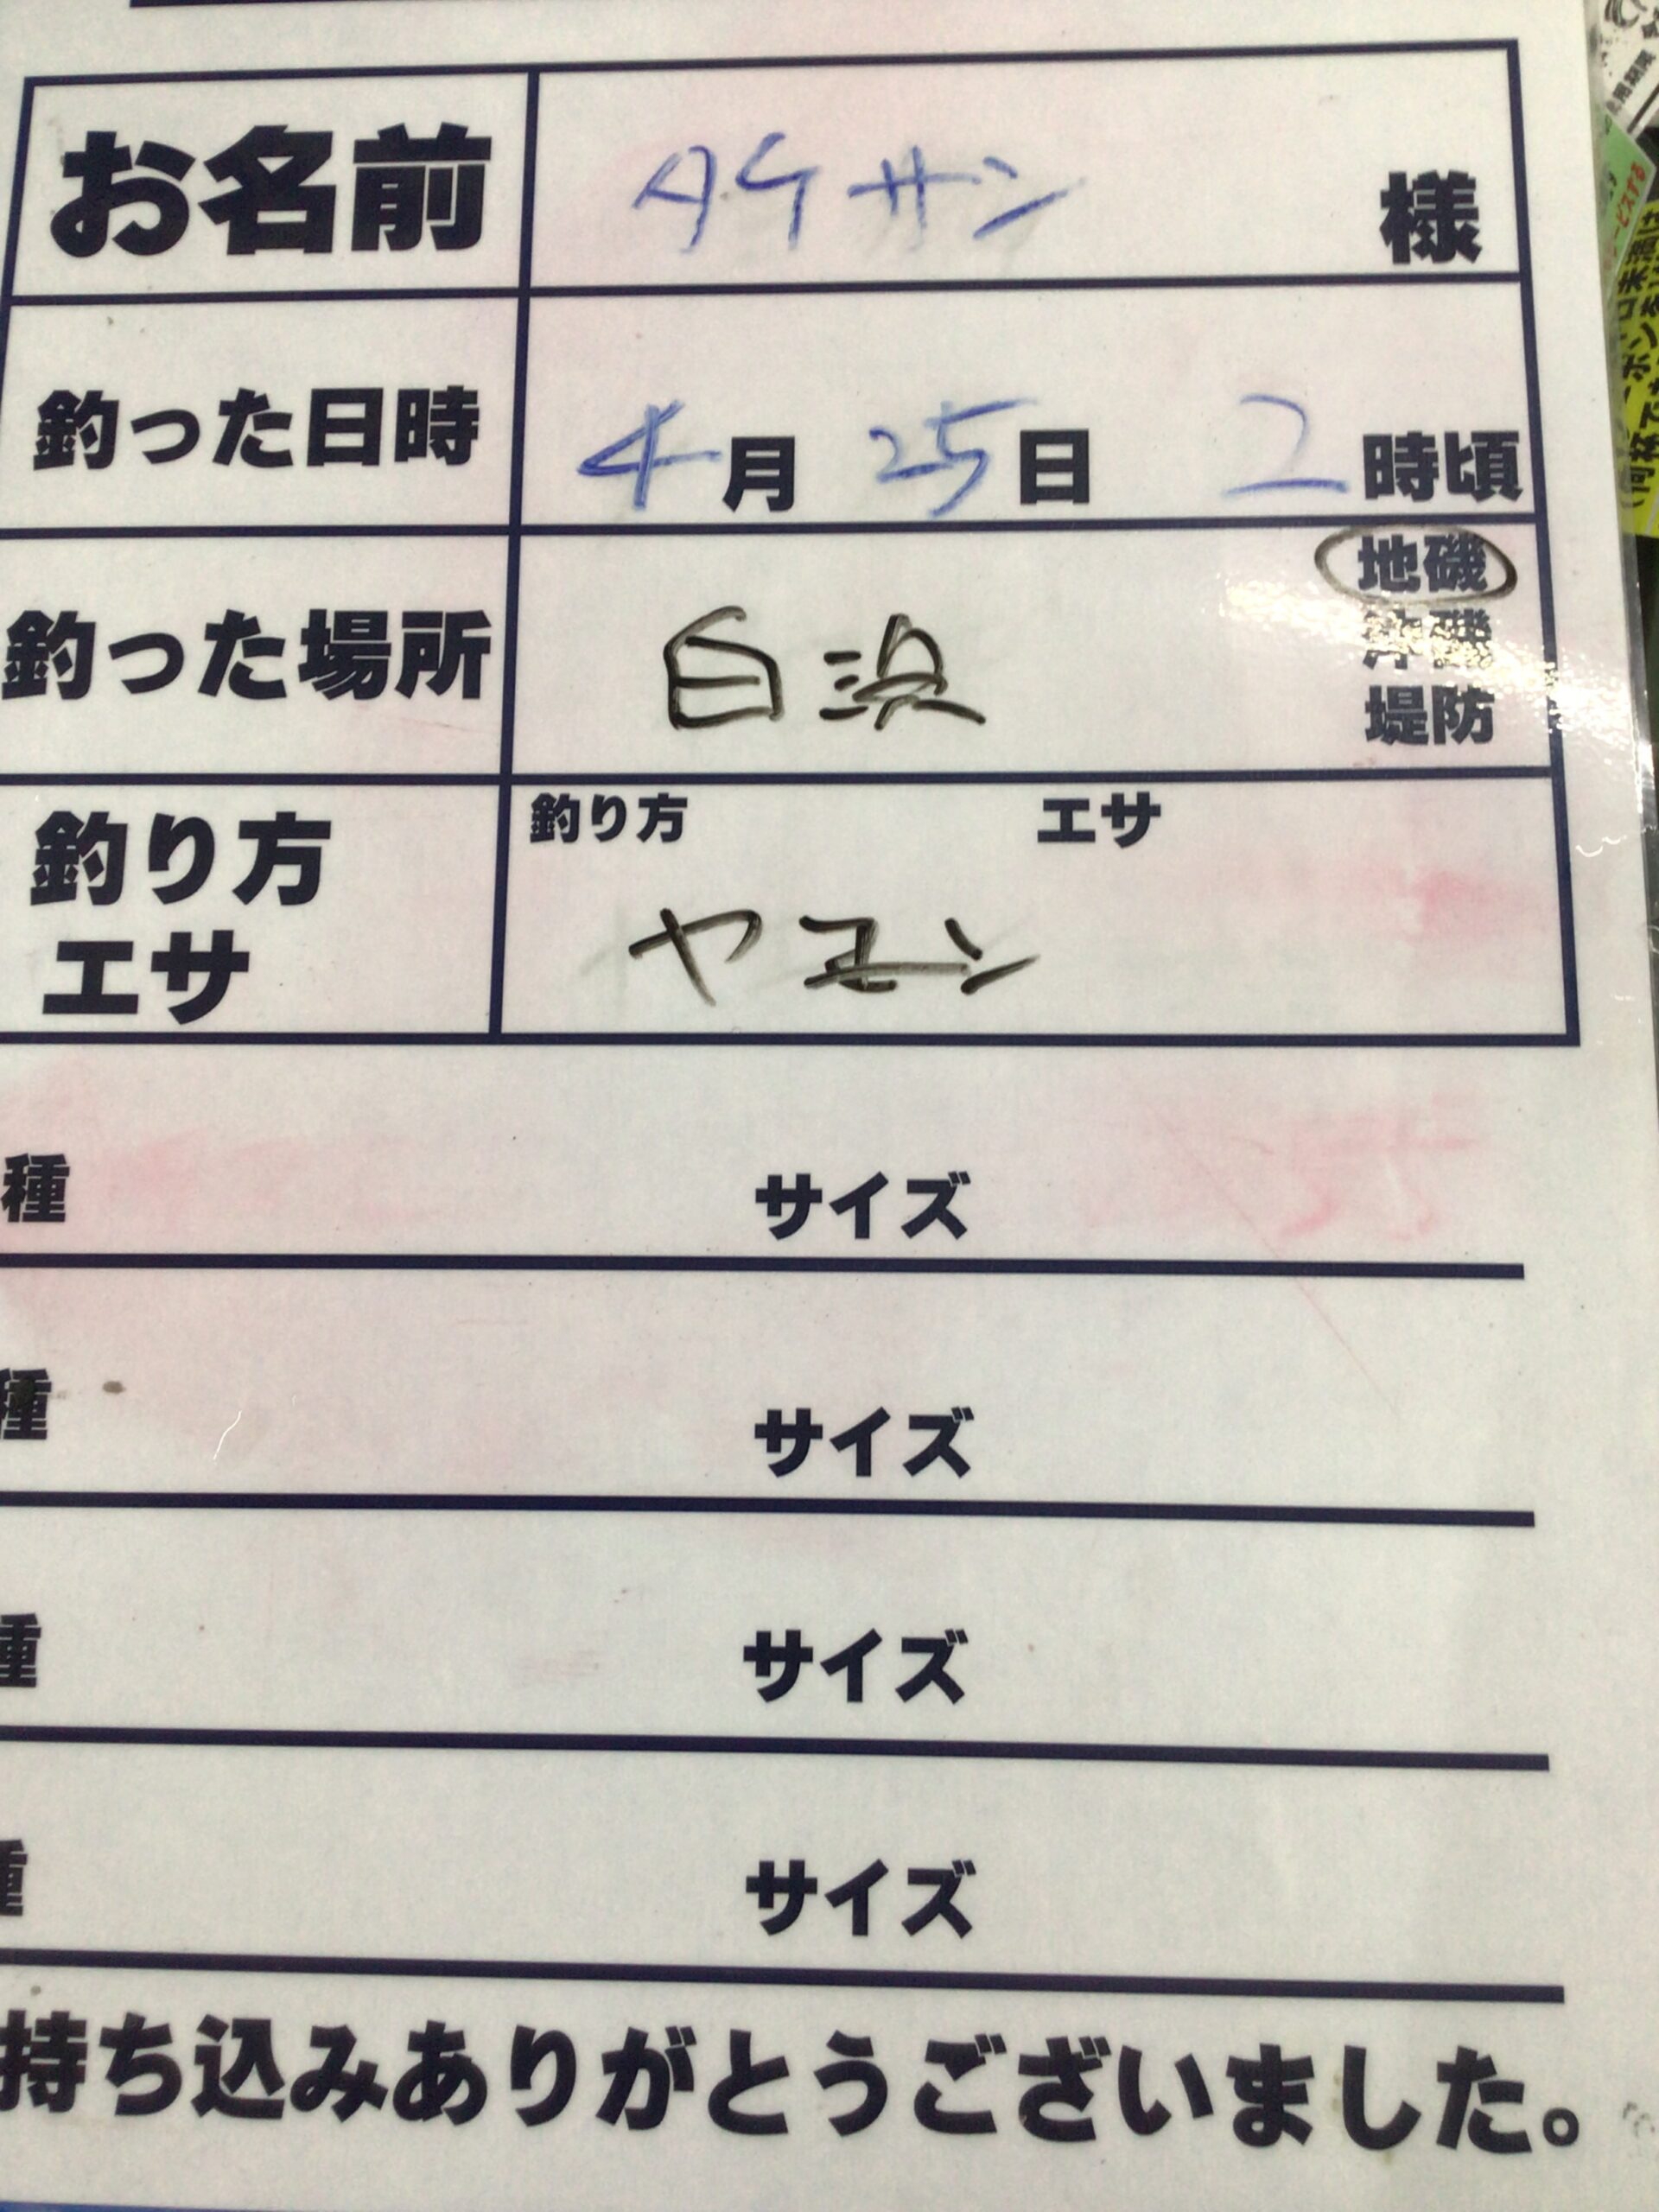 お名前 タケサン 様
釣った日時 4月 25日 2時頃
釣った場所 白浜 地磯
沖磯
堤防
釣り方 エサ
釣り方 エサ
ヤエン
種 サイズ
種 サイズ
種 サイズ
種 サイズ
持ち込みありがとうございました。